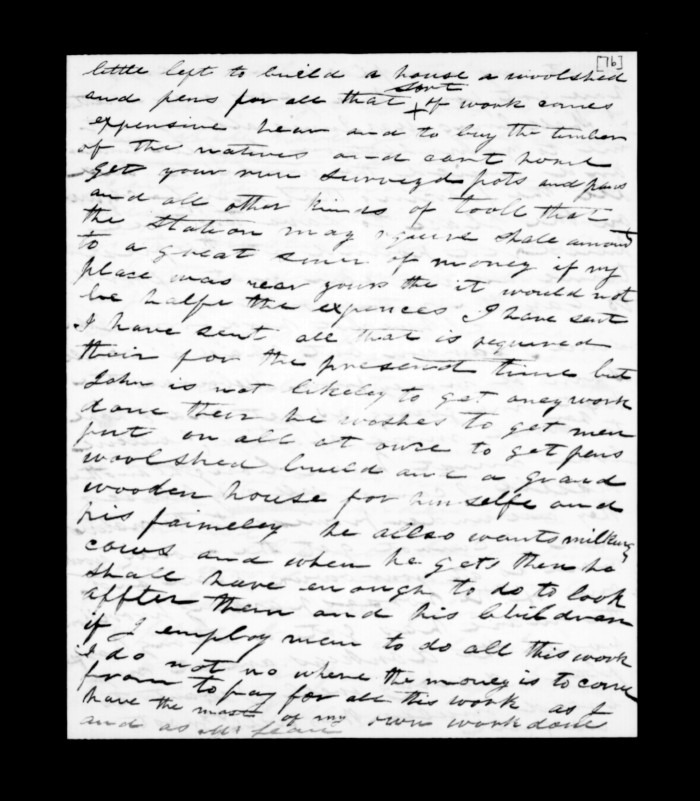 [76]
little left to build a house a woolshed
and pens for all that sort of work comes
expensive hear and to buy the timber
of the natives and cart home
get your run surveyd pots and pans
and all other kinds of tools that
the station may require shale amount
to a great sum of money if my
place was near yours the it would not
be halfe the expences I have sent
I have sent all that is required
their for the present time but
John is not likeley to get aney work
done their he wishes to get men
put on all at once to get pens
woolshed build and a grand
wooden house for himselfe and
his faimeley he allso wants milking
cows and when he gets then he
shall have enough to do to look
affter them and his Children
if I employ men to do all this work
I do not no where the money is to come
from to pay for all this work as I
have the most of my own work done
and as Mr